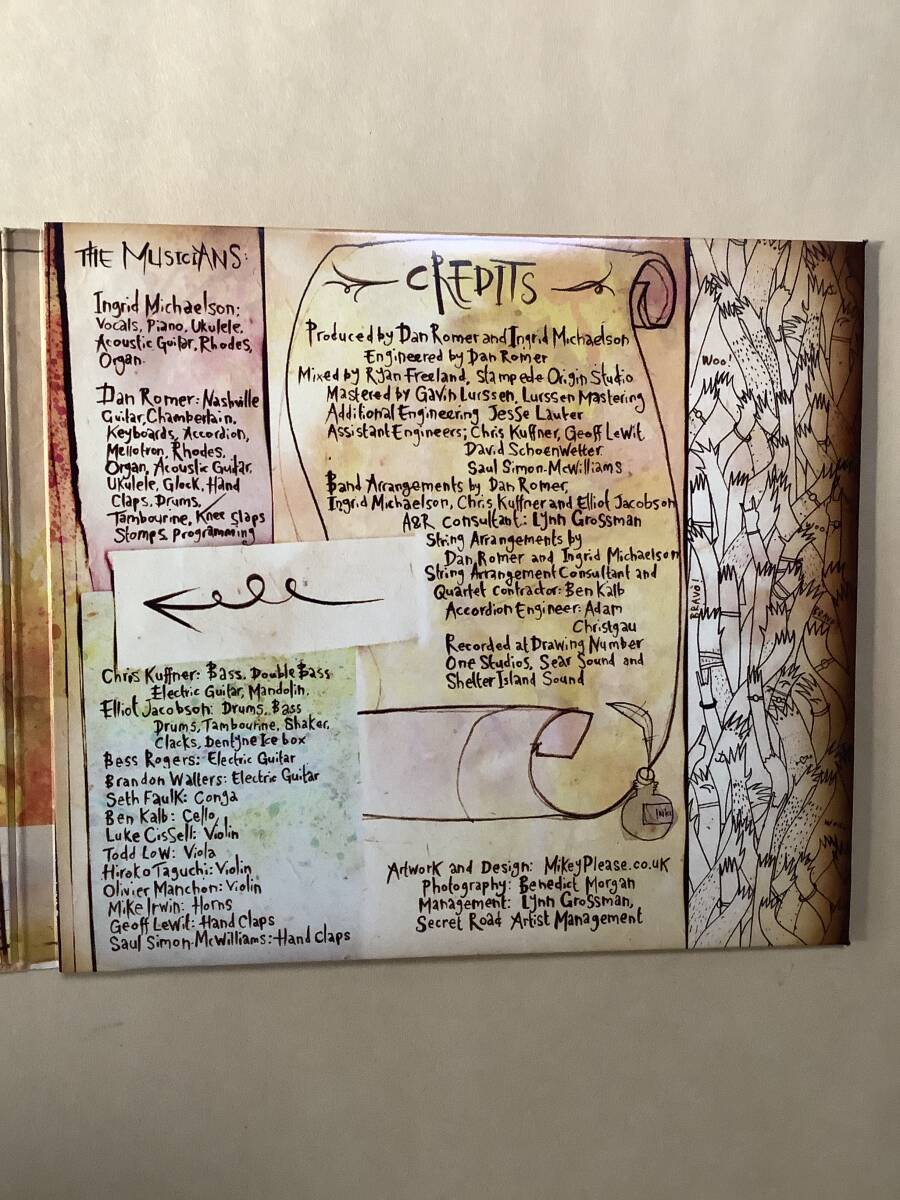 THE MUSICIANS:
Ingrid Michaelson:
Vocals, Piano, Ukulele,
Acoustic Guitar, Rhodes,
Organ.
Dan Romer: Nashville
Guitar, Chamberlain,
Keyboards, Accordion,
Mellotron, Rhodes,
Organ, Acoustic Guitar,
Ukulele, Glock, Hand
Claps, Drums,
Tambourine, Knee Claps
Stomps, Programming
Chris Kuffner: Bass, Double Bass
Electric Guitar, Mandolin,
Elliot Jacobson: Drums, Bass
Drums, Tambourine, Shaker,
Clacks, Dentyne Ice box
Bess Rogers: Electric Guitar
Brandon Walters: Electric Guitar
Seth Faulk: Conga
Ben Kalb: Cello,
Luke Cisself: Violin
Todd Low: Viola
Hiroko Taguchi: Violin
Olivier Manchon: Violin
Mike Irwin: Horns
Geoff LeWit: Hand Claps
Saul Simon-McWilliams: Hand Claps
CREDITS
Produced by Dan Romer and Ingrid Michaelson
Engineered by Dan Romer
Mixed by Ryan Freeland, Stampede Origin Studio
Mastered by Gavin Lurssen, Lurssen Mastering
Additional Engineering Jesse Lauter
Assistant Engineers; Chris Kuffner, Geoff LeWit
David Schoenwetter
Saul Simon-McWilliams
Band Arrangements by Dan Romer,
Ingrid Michaelson, Chris Kuffner and Elliot Jacobson
A&R Consultant: Lynn Grossman
String Arrangements by
Dan Romer and Ingrid Michaelson
String Arrangement Consultant and
Quartet contractor: Ben Kalb
Accordion Engineer: Adam
Christgau
Recorded at Drawing Number
One Studios, Sear Sound and
Shelter Island Sound
INK
Artwork and Design: MikeyPlease.co.uk
Photography: Benedict Morgan
Management: Lynn Grossman,
Secret Road Artist Management
Woo!
Woo!
BRAVO!